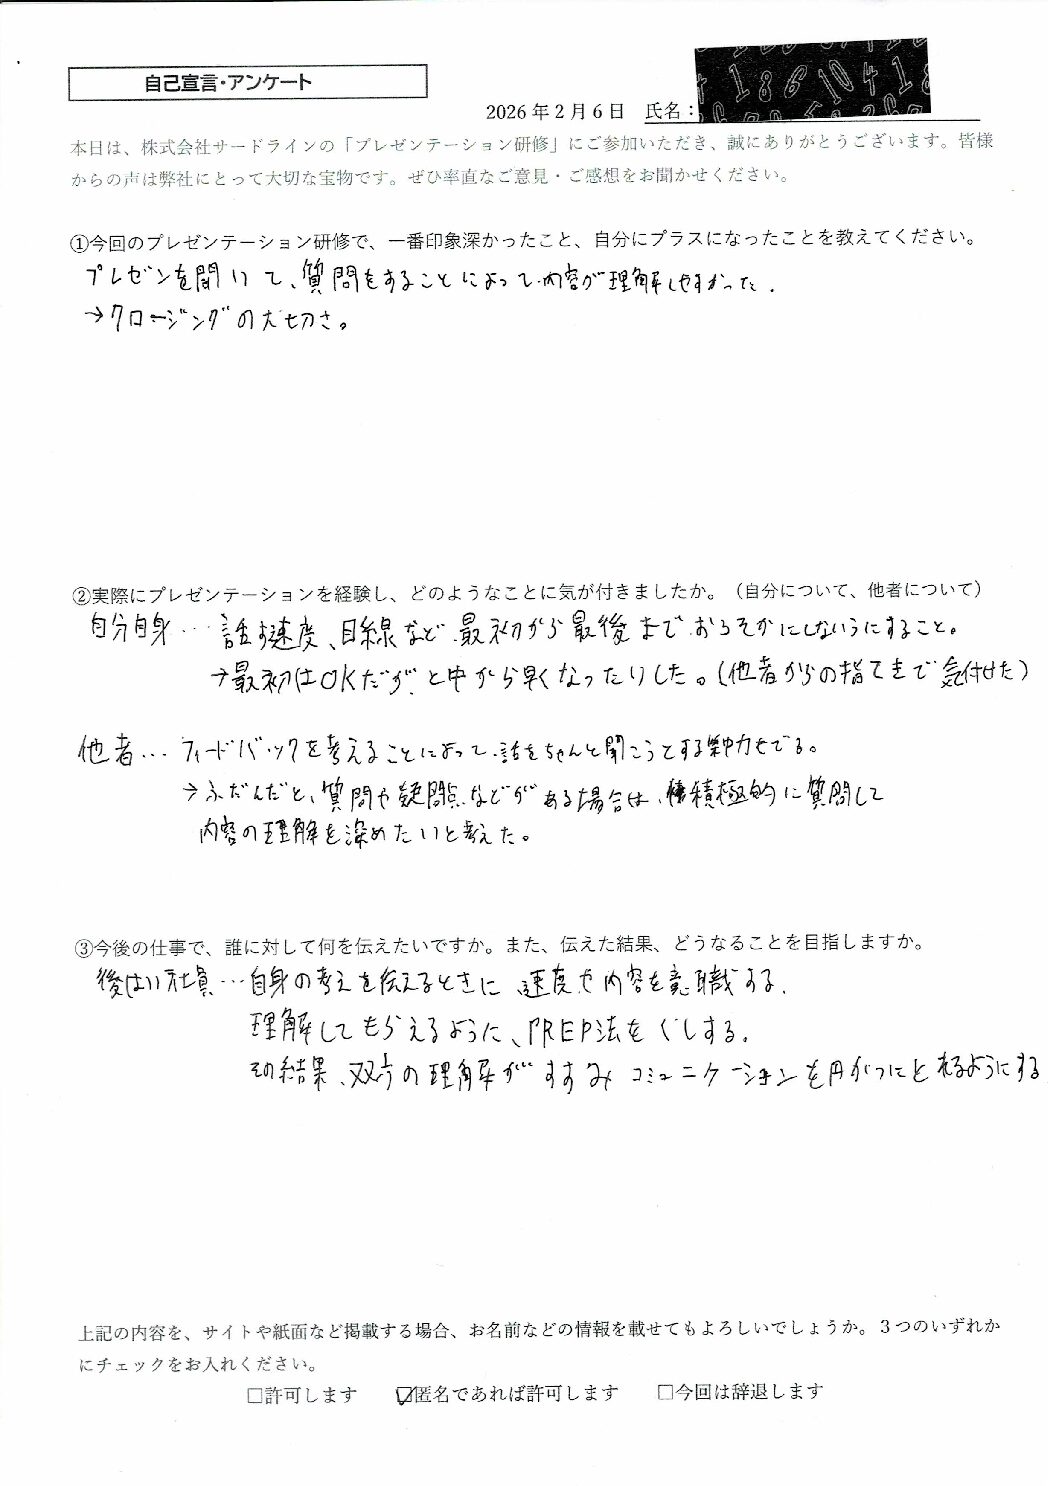 自己宣言・アンケート
2026年2月6日 氏名：
本日は、株式会社サードラインの「プレゼンテーション研修」にご参加いただき、誠にありがとうございます。皆様
からの声は弊社にとって大切な宝物です。ぜひ率直なご意見・ご感想をお聞かせください。
①今回のプレゼンテーション研修で、一番印象深かったこと、自分にプラスになったことを教えてください。
プレゼンを聞いて、質問をすることによって、内容が理解しやすかった。
→クロージングの大切さ。
②実際にプレゼンテーションを経験し、どのようなことに気が付きましたか。（自分について、他者について）
自分自身…話す速度、目線など、最初から最後までおろそかにしないうにすること。
→最初はOKだが、と中から早くなったりした。(他者からの指てきで気付けた)
他者… フィードバックを考えることによって、話をちゃんと聞こうとする集中力がでる。
→ふだんだと、質問や疑問点などがある場合は、積極的に質問して
内容の理解を深めたいと考えた。
③今後の仕事で、誰に対して何を伝えたいですか。また、伝えた結果、どうなることを目指しますか。
後はい社員…自身の考えを伝えるときに、速度や内容を意識する。
理解してもらえるように、PREP法をくしする。
その結果、双方の理解がすすみコミュニケーションを円かつにとれるようにする
上記の内容を、サイトや紙面など掲載する場合、お名前などの情報を載せてもよろしいでしょうか。３つのいずれか
にチェックをお入れください。
□許可します ☑匿名であれば許可します □今回は辞退します